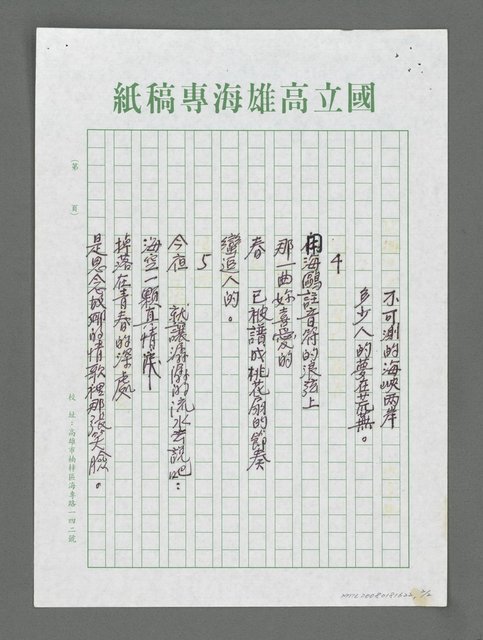 國立高雄海專稿紙
不可測的海峽兩岸
多少人的夢在荒蕪。
4
用海鷗註音符的浪弦上
那一曲妳喜愛的
春 已被譜成桃花扇的節奏
蠻追人的。
5
今夜 就讓潺潺的流水去說吧：
海空一顆真情
掉落在青春的深處
是思念故鄉的情歌裡那張笑臉。
（第 頁）
校址：高雄市楠梓區海專路一四二號